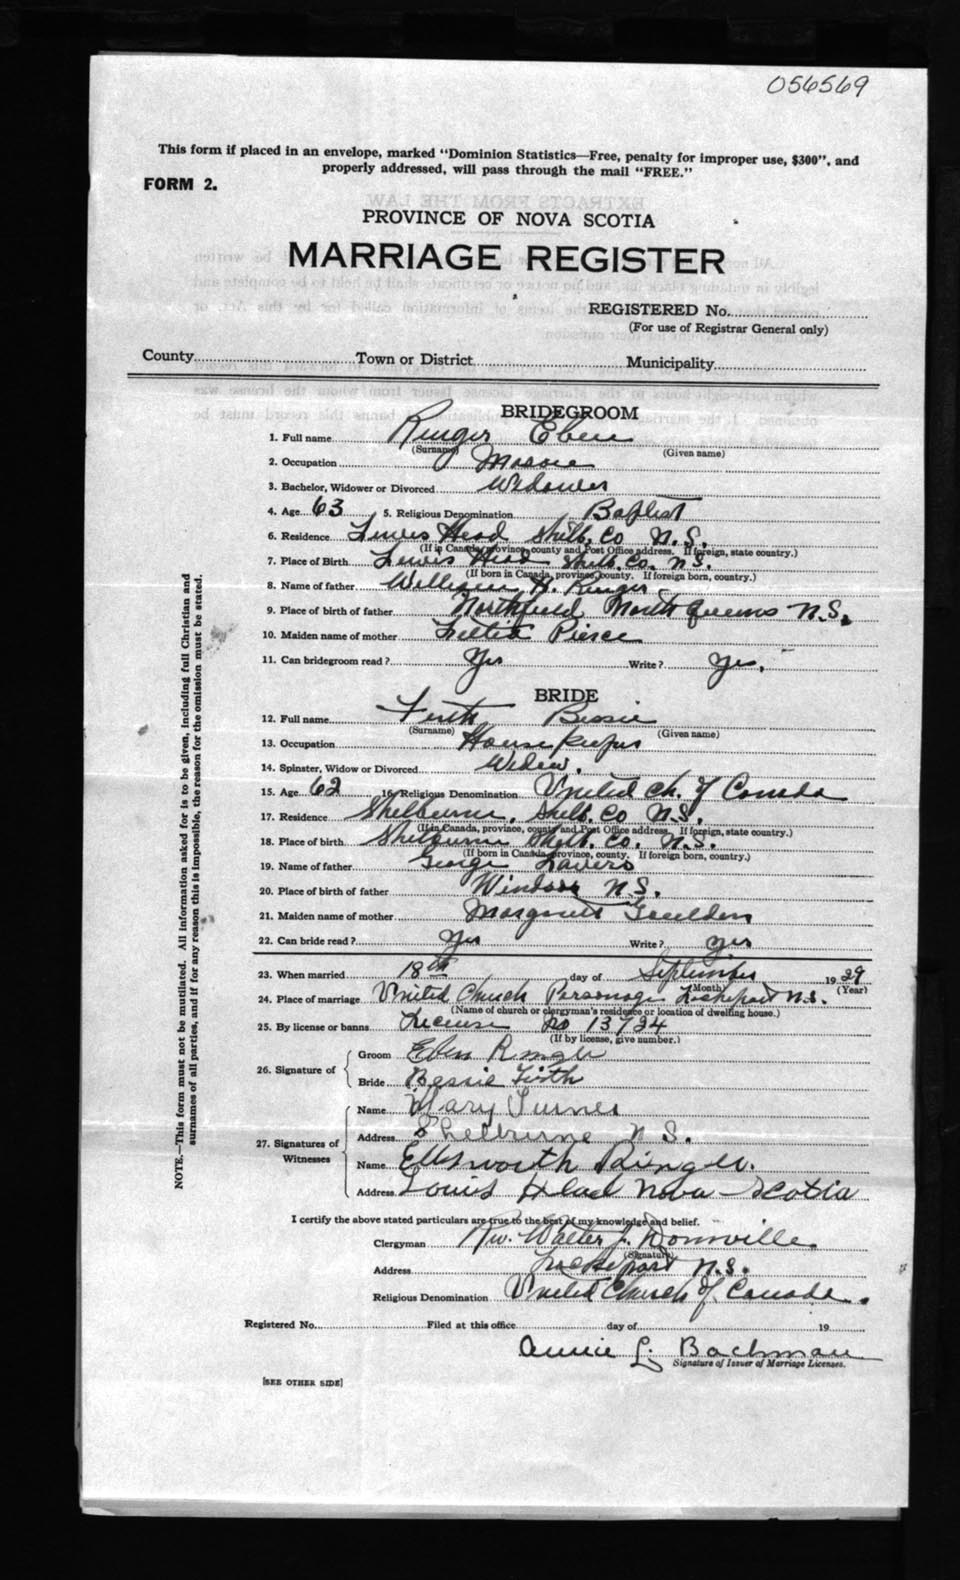 056569
This form if placed in an envelope, marked "Dominion Statistics—Free, penalty for improper use, $300", and
properly addressed, will pass through the mail "FREE."
FORM 2.
PROVINCE OF NOVA SCOTIA
MARRIAGE REGISTER
REGISTERED No.
(For use of Registrar General only)
County Town or District Municipality
BRIDEGROOM
1. Full name Ringer Eben
(Surname) (Given name)
2. Occupation Mason
3. Bachelor, Widower or Divorced Widower
4. Age 63 5. Religious Denomination Baptist
6. Residence Lewis Head Shelb. Co N.S.
(If in Canada, province, county and Post Office address. If foreign, state country.)
7. Place of Birth Lewis Head Shelb. Co. N.S.
(If born in Canada, province, county. If foreign born, country.)
8. Name of father William H. Ringer
9. Place of birth of father Northfield North Queens N.S.
10. Maiden name of mother Pierce
11. Can bridegroom read? Yes Write? Yes.
BRIDE
12. Full name Firth Bessie
(Surname) (Given name)
13. Occupation Housekeeper
14. Spinster, Widow or Divorced Widow.
15. Age 62 16. Religious Denomination United Ch. of Canada
17. Residence Shelburne, Shelb. Co N.S.
(If in Canada, province, county and Post Office address. If foreign, state country.)
18. Place of birth Shelburne Shelb. Co. N.S.
(If born in Canada, province, county. If foreign born, country.)
19. Name of father George
20. Place of birth of father Windsor N.S.
21. Maiden name of mother Margaret
22. Can bride read? Yes Write? yes
23. When married 18th day of September 1929
(Month) (Year)
24. Place of marriage United Church Parsonage Lockeport N.S.
(Name of church or clergyman's residence or location of dwelling house.)
25. By license or banns License no 13724
(If by license, give number.)
26. Signature of
Groom Eben Ringer
Bride Bessie Firth
27. Signatures of Witnesses
Name Mary Turner
Address Shelburne N.S.
Name Ellsworth Ringer.
Address Louis Head Nova Scotia
I certify the above stated particulars are true to the best of my knowledge and belief.
Clergyman Rev. Walter J. Domville.
(Signature)
Address Lockeport N.S.
Religious Denomination United Church of Canada.
Registered No. Filed at this office day of 19
Annie L. Bachman
Signature of Issuer of Marriage Licenses.
[SEE OTHER SIDE]
NOTE.—This form must not be mutilated. All information asked for is to be given, including full Christian and
surnames of all parties, and if for any reason this is impossible, the reason for the omission must be stated.